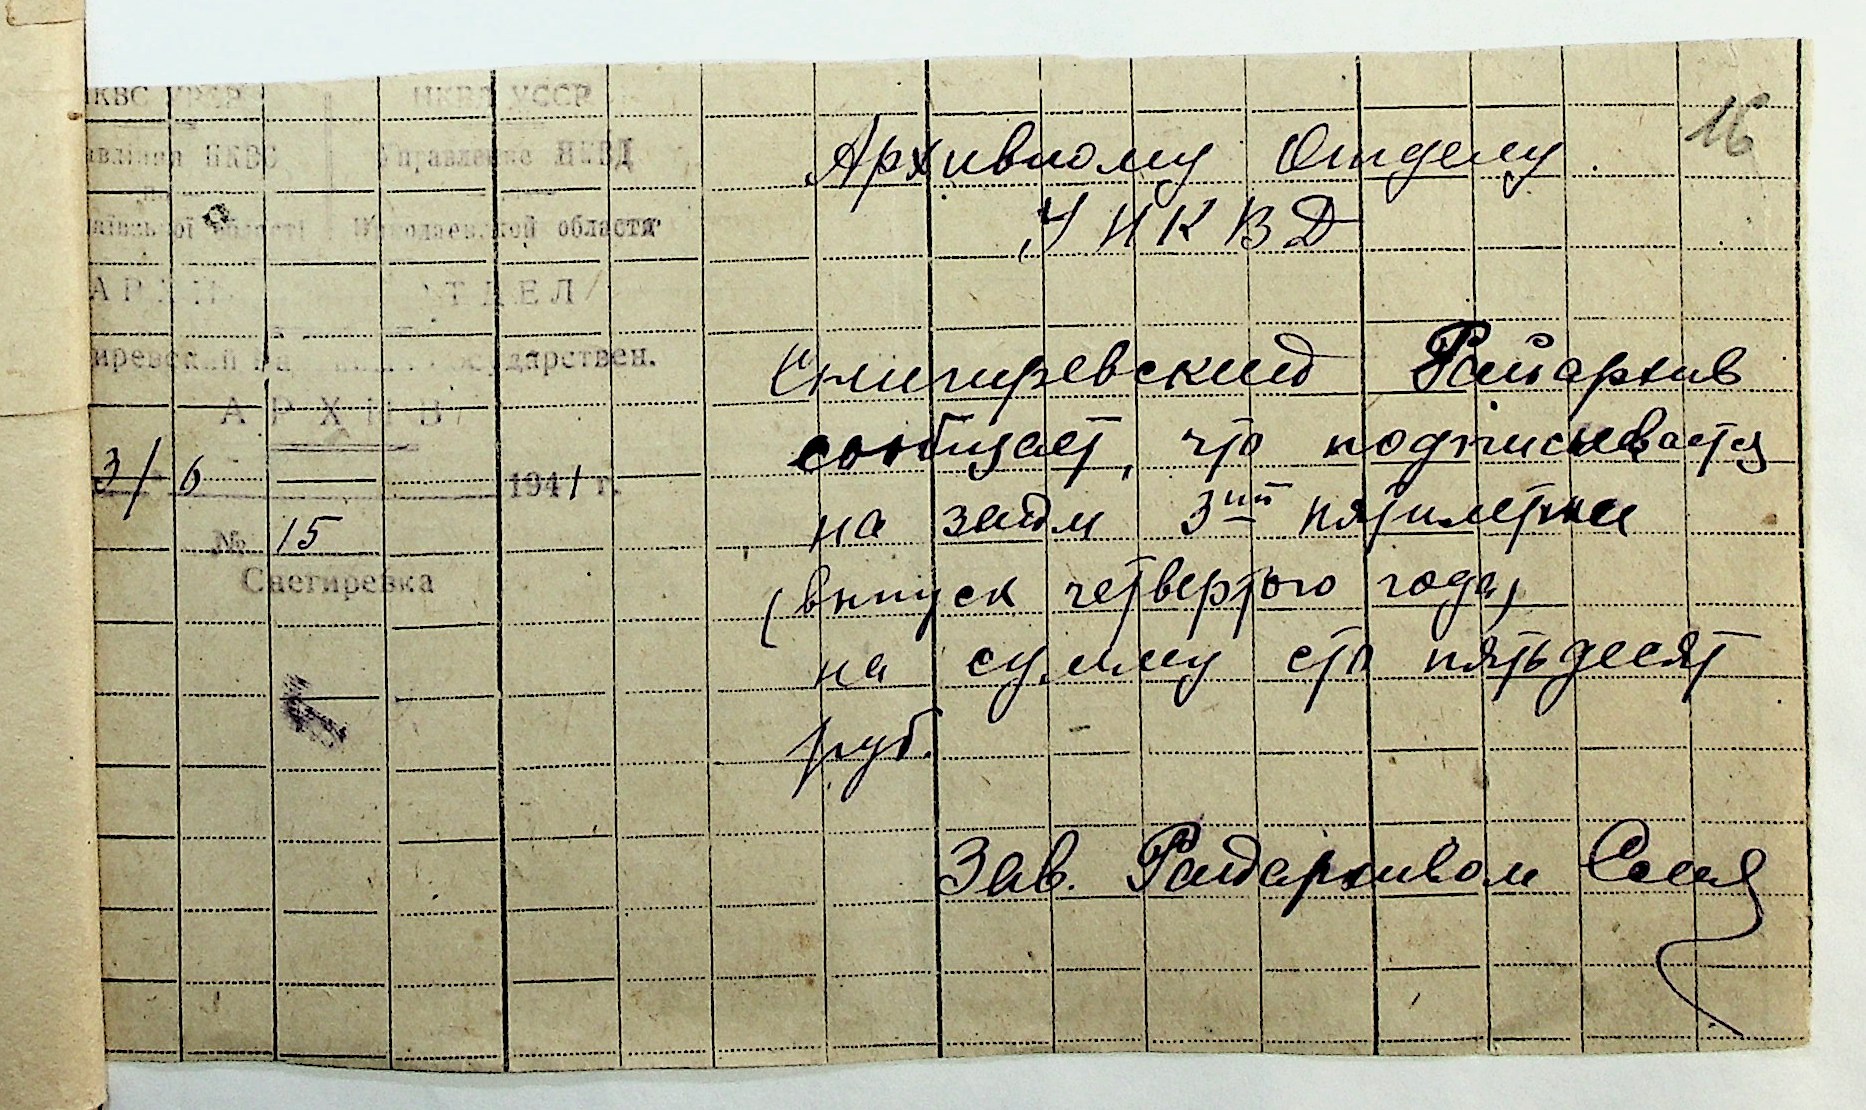 16
НКВД УССР
Управление НКВД
Николаевской области
государствен.
АРХИВ
3/6 1941 г.
№ 15
Снегиревка
Архивному Отделу
УНКВД
Снигиревский Райархив
сообщает, что подписывается
на заём 3ей пятилетки
(выпуск четвертого года)
на сумму сто пятьдесят
руб.
Зав. Райархивом